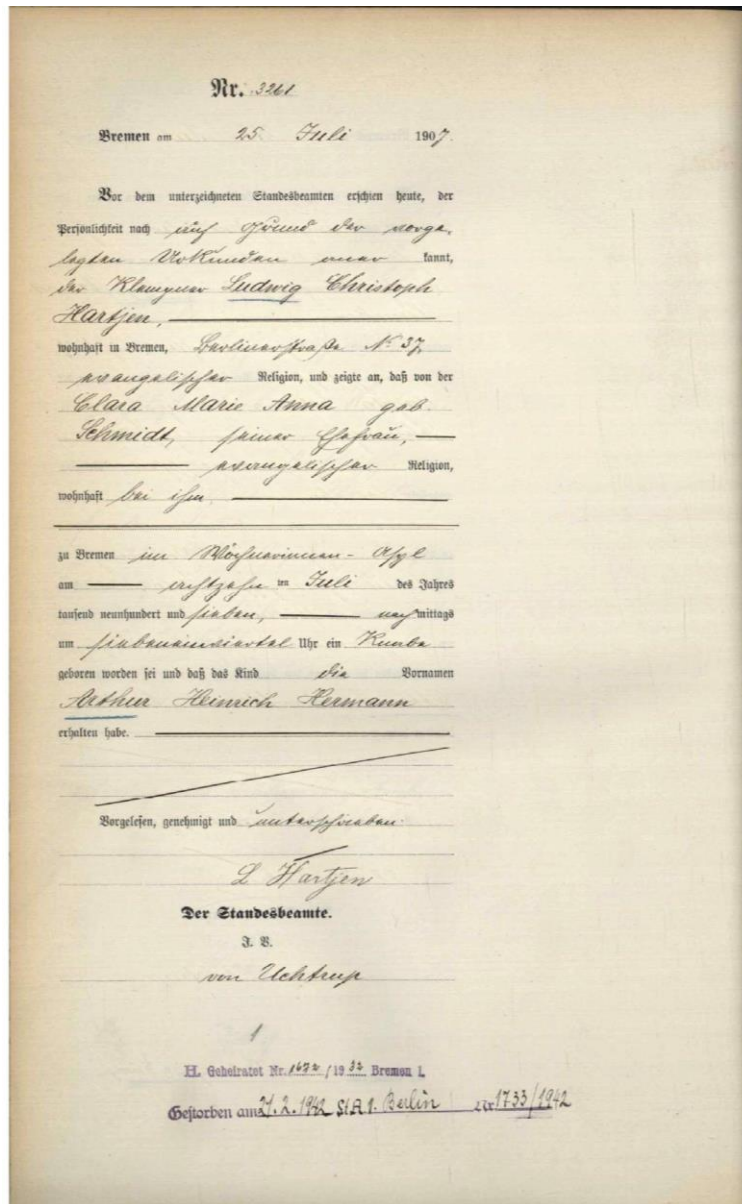 Nr. 3261
Bremen am 25. Juli 1907.
Vor dem unterzeichneten Standesbeamten erschien heute, der
Persönlichkeit nach auf Grund der vorge-
legten Urkunden aner kannt,
der Klempner Ludwig Christoph
Hartjen,
wohnhaft in Bremen, Berlinerstraße No 37,
evangelischer Religion, und zeigte an, daß von der
Clara Marie Anna geb.
Schmidt, seiner Ehefrau,
evangelischer Religion,
wohnhaft bei ihm
zu Bremen im Wöchnerinnen-Asyl
am achtzehn ten Juli des Jahres
tausend neunhundert und sieben, nachmittags
um siebeneinviertel Uhr ein Knabe
geboren worden sei und daß das Kind die Vornamen
Arthur Heinrich Hermann
erhalten habe.
Vorgelesen, genehmigt und unterschrieben.
L Hartjen
Der Standesbeamte.
J. V.
von Uchtrup
1
H. Geheiratet Nr. 1672/1932 Bremen I.
Gestorben am 21.2.1942 StA 1. Berlin Nr 1733/1942